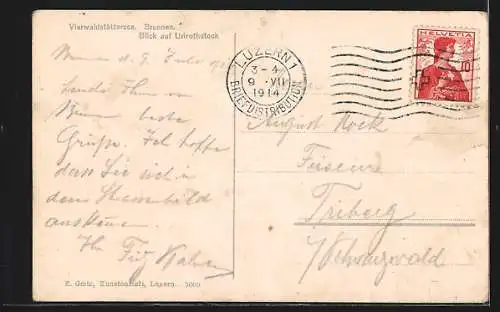 Vierwaldstättersee. Brunnen.
Blick auf Urirothstock
LUZERN 1
3-4
9 VII
1914
BRIEFDISTRIBUTION
HELVETIA
10
d. 9. Juli
Sende Ihnen
beste
Grüsse. Ich hoffe
dass Sie sich in
dem
Ihr Fritz
August
Friseur
Triberg
Schwarzwald
E. Goetz, Kunstanstalt, Luzern.